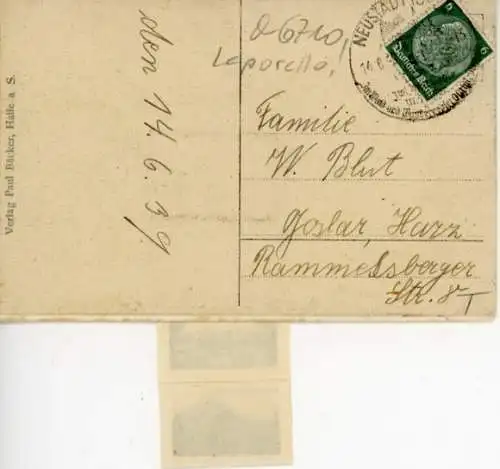 Verlag Paul Bäcker, Halle a S.
den 14. 6. 39
Leporello!
NEUSTADT
14.6.
6
Deutsches Reich
Familie
W. Blut
Goslar, Harz
Rammelsberger
Str. 8